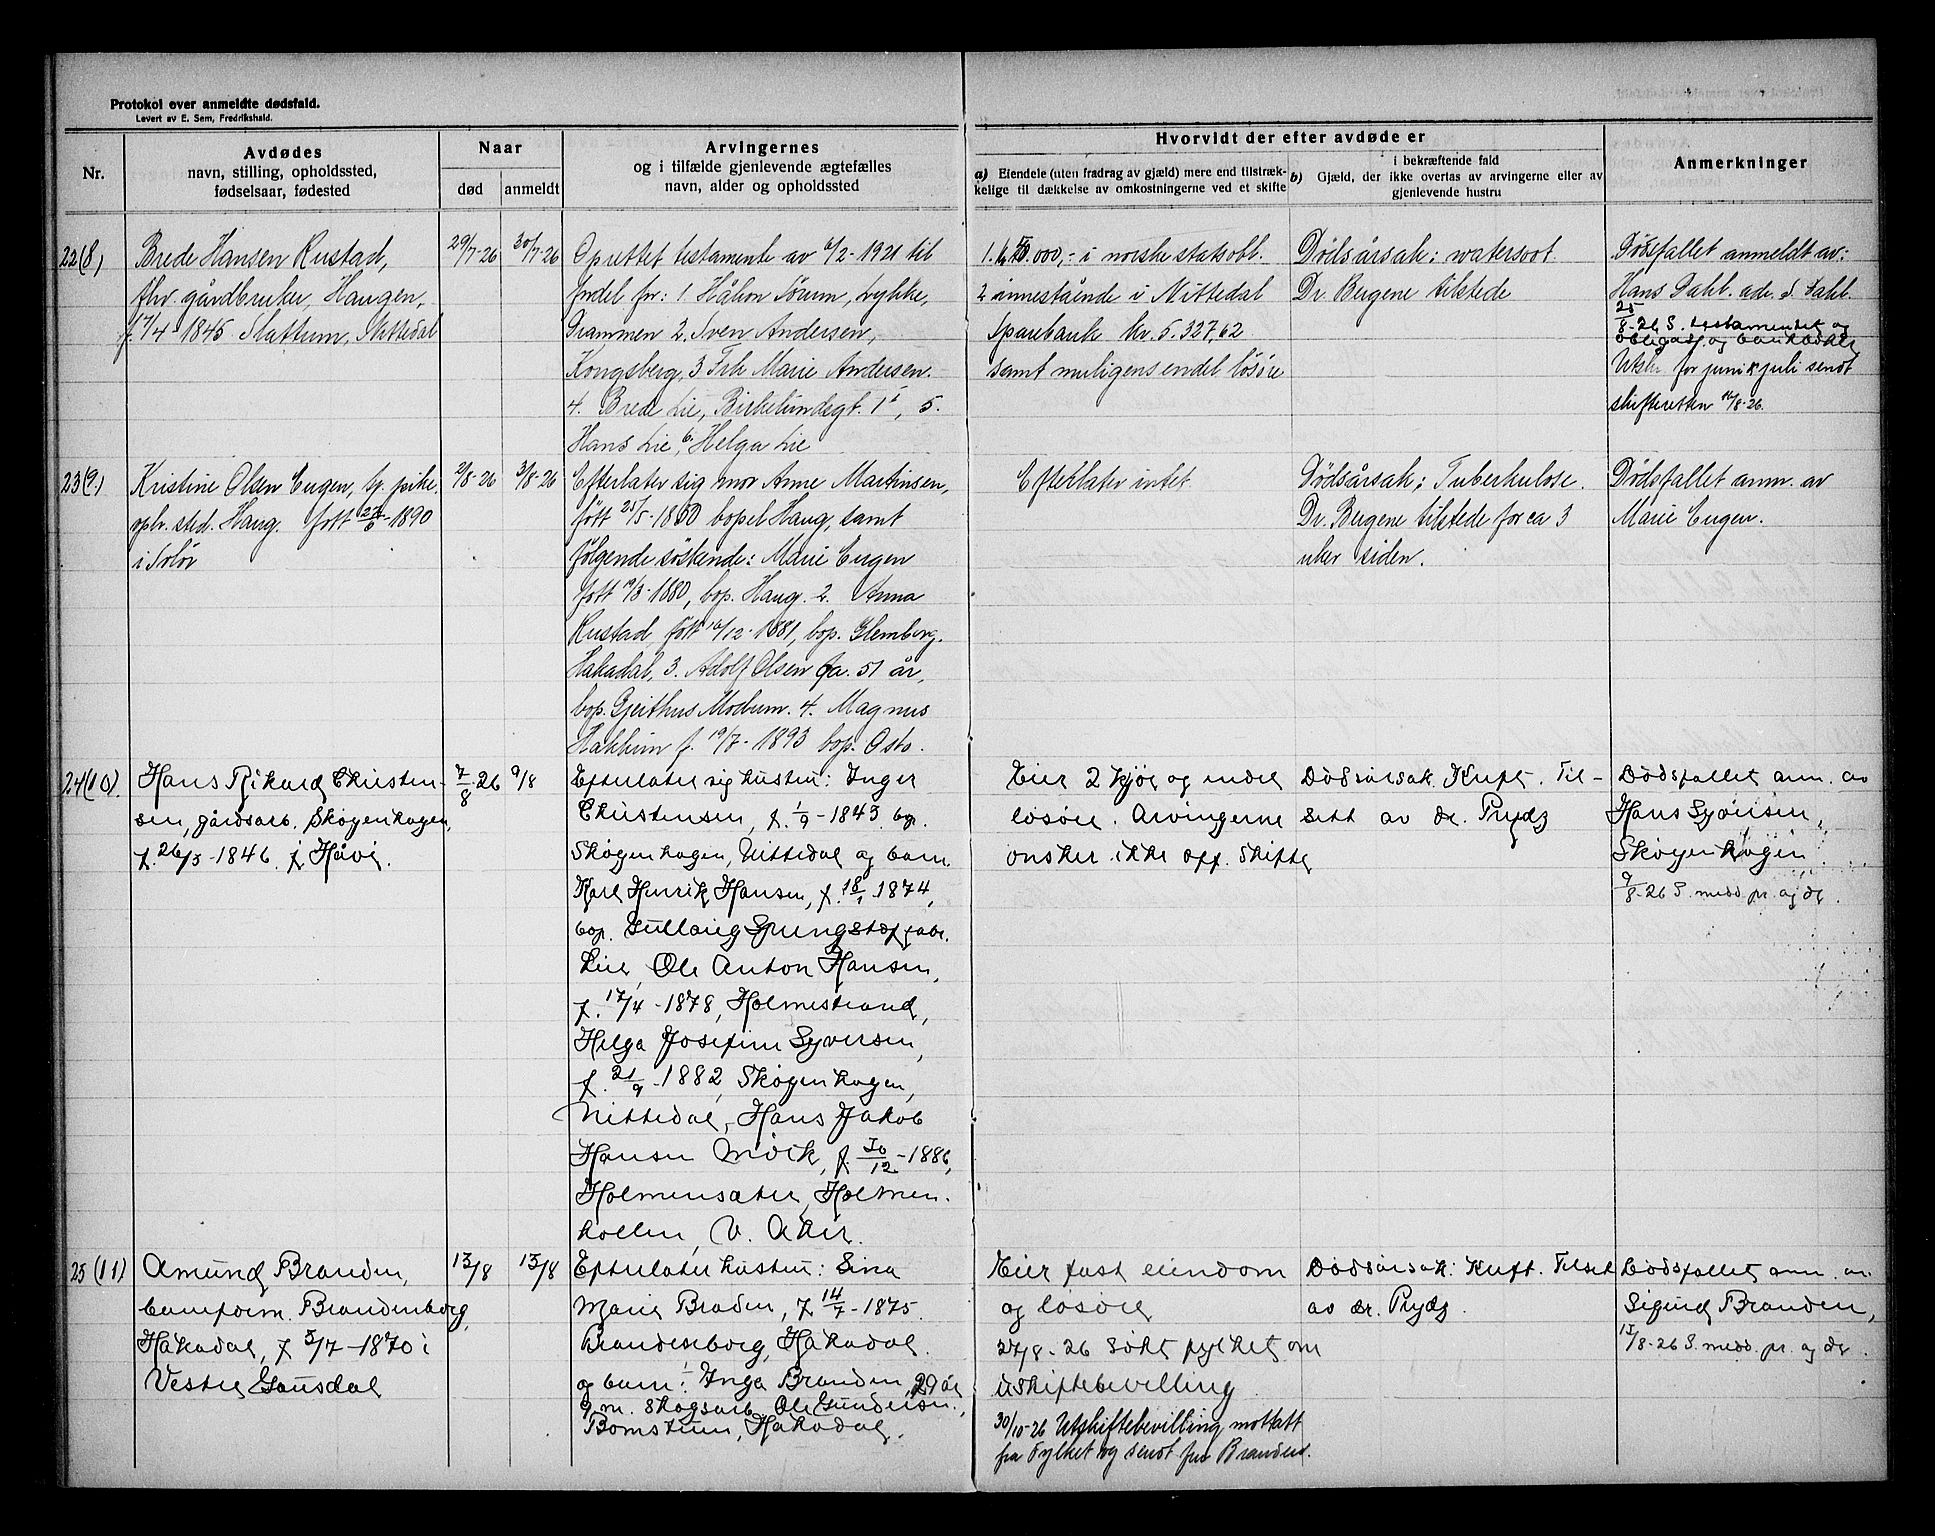 Protokol over anmeldte dødsfald.
Levert av E. Sem, Fredrikshald.
Nr.
Avdødes
navn, stilling, opholdssted,
fødselsaar, fødested
Naar
død
anmeldt
Arvingernes
og i tilfælde gjenlevende ægtefælles
navn, alder og opholdssted
Hvorvidt der efter avdøde er
a) Eiendele (uten fradrag av gjæld) mere end tilstræk-
kelige til dækkelse av omkostningerne ved et skifte
i bekræftende fald
b) Gjæld, der ikke overtas av arvingerne eller av
gjenlevende hustru
Anmerkninger
22(8)
Brede Hansen Rustad,
fhv. gårdbruker, Haugen,
f. 7/4-1845 Slattum, Nittedal
29/7-26
30/7-26
Oprettet testamente av 6/2-1921 til
fordel for: 1. Håkon Sörum, Lykke,
Drammen 2. Sven Andersen,
Kongsberg, 3 Frk Marie Andersen.
4. Brede Lie, Birkelundegt. 1, 5.
Hans Lie, 6. Helga Lie
i norske statsobl.
2 innestående i Nittedal
Sparebank kr. 5.327,62
samt muligens endel lösöre
Dödsårsak: watersoot.
Dr. Bergene tilstede
Dödsfallet anmeldt av:
Hans Dahl.
25/8-26 S. testamentet og
obligasj. og bankbok
Utskr for juni & juli sendt
skifteretten 14/8-26.
23(9)
Kristine Olsen Eugen, ug. pike,
oph. sted. Haug. fött 27/6-1890
i Solör
2/8-26
3/8-26
Efterlater sig mor Anne Martinsen,
fött 25/5-1850 bopel Haug, samt
fölgende söskende: Marie Eugen
fött 19/3-1880, bop. Haug. 2. Anna
Rustad, fött 16/12-1881, bop. Glemberg,
Hakadal, 3. Adolf Olsen ca. 51 år,
bop. Gjeithus Modum. 4. Magnus
f. 19/7-1893 bop. Oslo.
Efterlater intet
Dödsårsak: Tuberkulose.
Dr. Bergene tilstede for ca 3
uker siden.
Dödsfallet anm. av
Marie Eugen.
24(10)
Hans Rikard Christen-
sen, gårdsarb. Skogenhagen,
f. 26/3-1846. f Håvi.
7/8-26
9/8
Efterlater sig hustru: Inger
Christensen, f. 1/9-1843. bop.
Skogenhagen, Nittedal og barn
Karl Henrik Hansen, f. 18/1-1874,
bop. Gullaug Sprengstoffabr.
Lier, Ole Anton Hansen,
f. 17/4-1878, Holmestrand,
Helga Josefine Syversen,
f. 21/9-1882, Skogenhagen,
Nittedal, Hans Jakob
Hansen Mörk, f. 30/12-1886,
Holmensæter, Holmen-
kollen, V. Aker.
Eier 2 kjör og endel
lösöre. Arvingerne
önsker ikke off. skifte
Dödsårsak Kreft. Til-
sett av dr. Prydz
Dödsfallet anm. av
Hans Syversen,
Skogenhagen
9/8-26 S. medd. pr. og dr.
25(11)
Amund Branden,
banform. Brandenborg,
Hakadal, f 3/7-1870 i
Vestre Gausdal
13/8
13/8
Efterlater hustru: Sina
Marie Braden, f. 14/7-1875.
Brandenborg, Hakadal.
og barn: 1 Inga Branden, 29 år
g. m. skogsarb. Ole Gundersen,
Bomstuen, Hakadal.
Eier fast eiendom
og lösöre
27/8-26 Sökt fylket om
uskiftebevilling
30/10-26 Utskiftebevilling mottatt
fra Fylket og sendt fru Branden.
Dödsårsak: Kreft. Tilset
av dr. Prydz.
Dödsfallet anm. av
Sigurd Branden,
13/8-26 S. medd. pr. og dr.